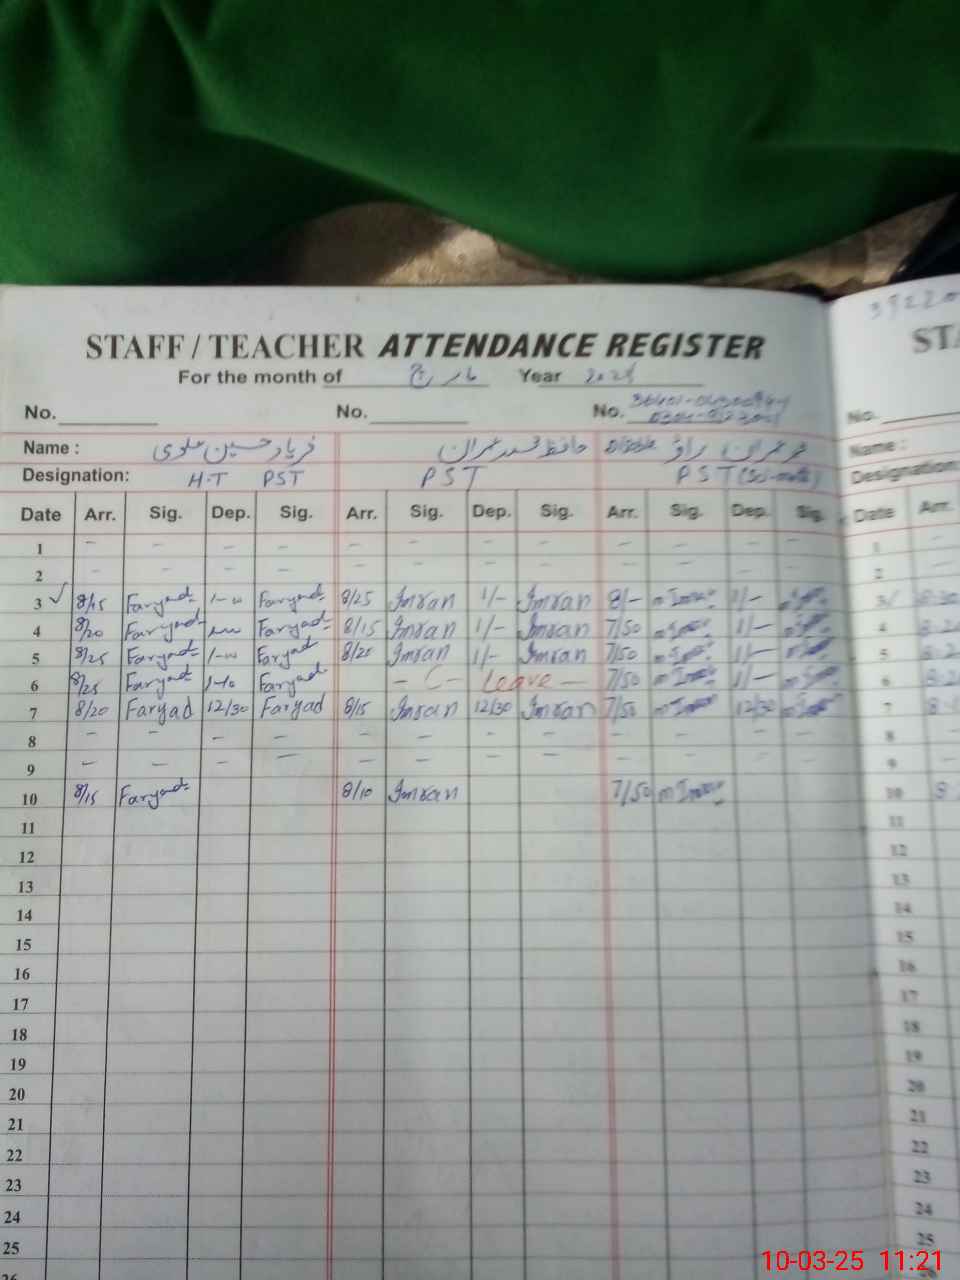 STAFF / TEACHER ATTENDANCE REGISTER
For the month of مارچ Year 2025
No. No. No.
Name : فریاد حسین علوی حافظ محمد عمران محمد عمران راؤ Disable
Designation: H.T PST PST PST (Sci-math)
Date Arr. Sig. Dep. Sig. Arr. Sig. Dep. Sig. Arr. Sig. Dep. Sig.
1 – – – – – – – – – – – –
2 – – – – – – – – – – – –
3 ✓ 8/15 Faryad Faryad 8/25 Imran 1/- Imran 8/- m Imran 1/-
4 8/20 Faryad Faryad 8/15 Imran 1/- Imran 7/50 1/-
5 8/25 Faryad Faryad 8/20 Imran 1/- Imran 7/50 1/-
6 8/25 Faryad Faryad – C – Leave – 7/50 m Imran 1/-
7 8/20 Faryad 12/30 Faryad 8/15 Imran 12/30 Imran 7/50 m Imran 12/30
8 – – – – – – – – – – – –
9 – – – – – – – – – – – –
10 8/15 Faryad 8/10 Imran 7/50 m Imran
11
12
13
14
15
16
17
18
19
20
21
22
23
24
25
26
STA
No.
Name :
Designation:
Date Arr.
1
2
3
4
5
6
7
8
9
10
11
12
13
14
15
16
17
18
19
20
21
22
23
24
25
26
10-03-25 11:21